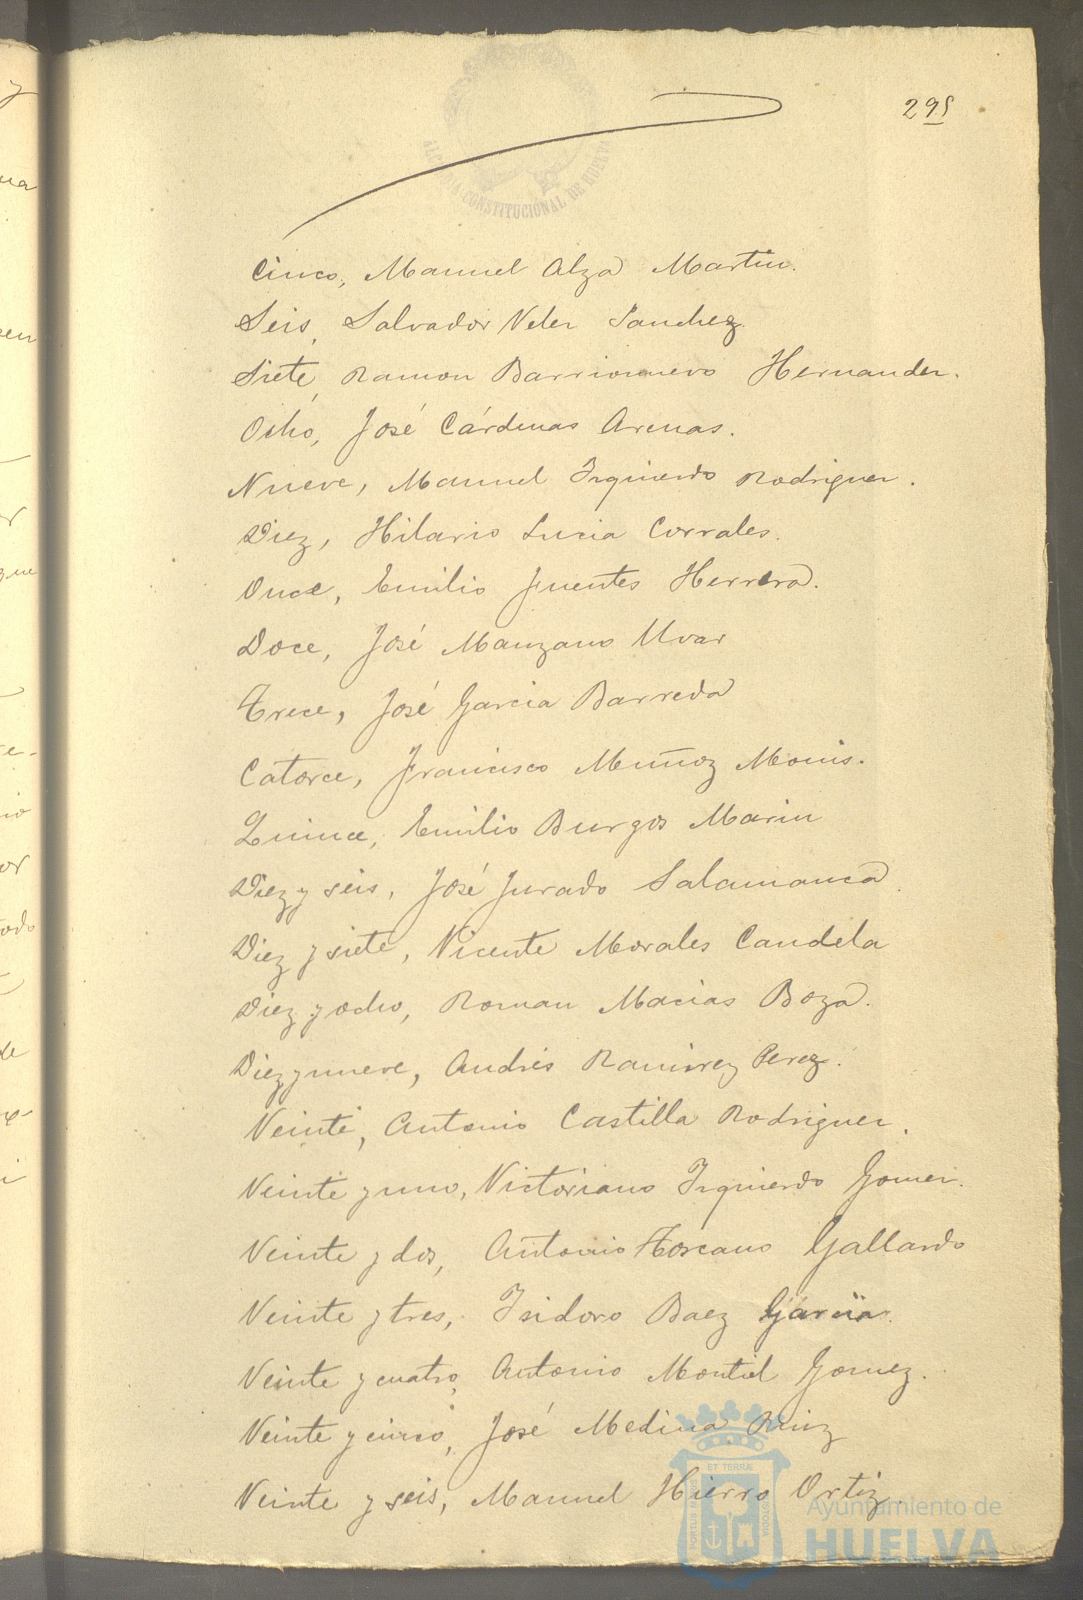 295
ALCALDIA CONSTITUCIONAL DE HUELVA
Cinco, Manuel Alza Martin.
Seis, Salvador Veler Sanchez.
Siete, Ramon Barrionuevo Hernander.
Ocho, José Cárdenas Arenas.
Nueve, Manuel Izquierdo Rodriguer.
Diez, Hilario Lucia Corrales.
Once, Emilio Fuentes Herrera.
Doce, José Manzano
Trece, José Garcia Barreda
Catorce, Francisco Muñoz Monis.
Quince, Emilio Burgos Marin
Diez y seis, José Jurado Salamanca.
Diez y siete, Vicente Morales Candela
Diez y ocho, Roman Macias Boza.
Diez y nueve, Andrés Ramirez Perez.
Veinte, Antonio Castilla Rodriguer.
Veinte y uno, Victoriano Izquierdo Gomer.
Veinte y dos, Antonio Toscano Gallardo
Veinte y tres, Isidoro Baez Garcia.
Veinte y cuatro, Antonio Montiel Gomez.
Veinte y cinco, José Medina Ruiz
Veinte y seis, Manuel Hierro Ortiz
Ayuntamiento de
HUELVA